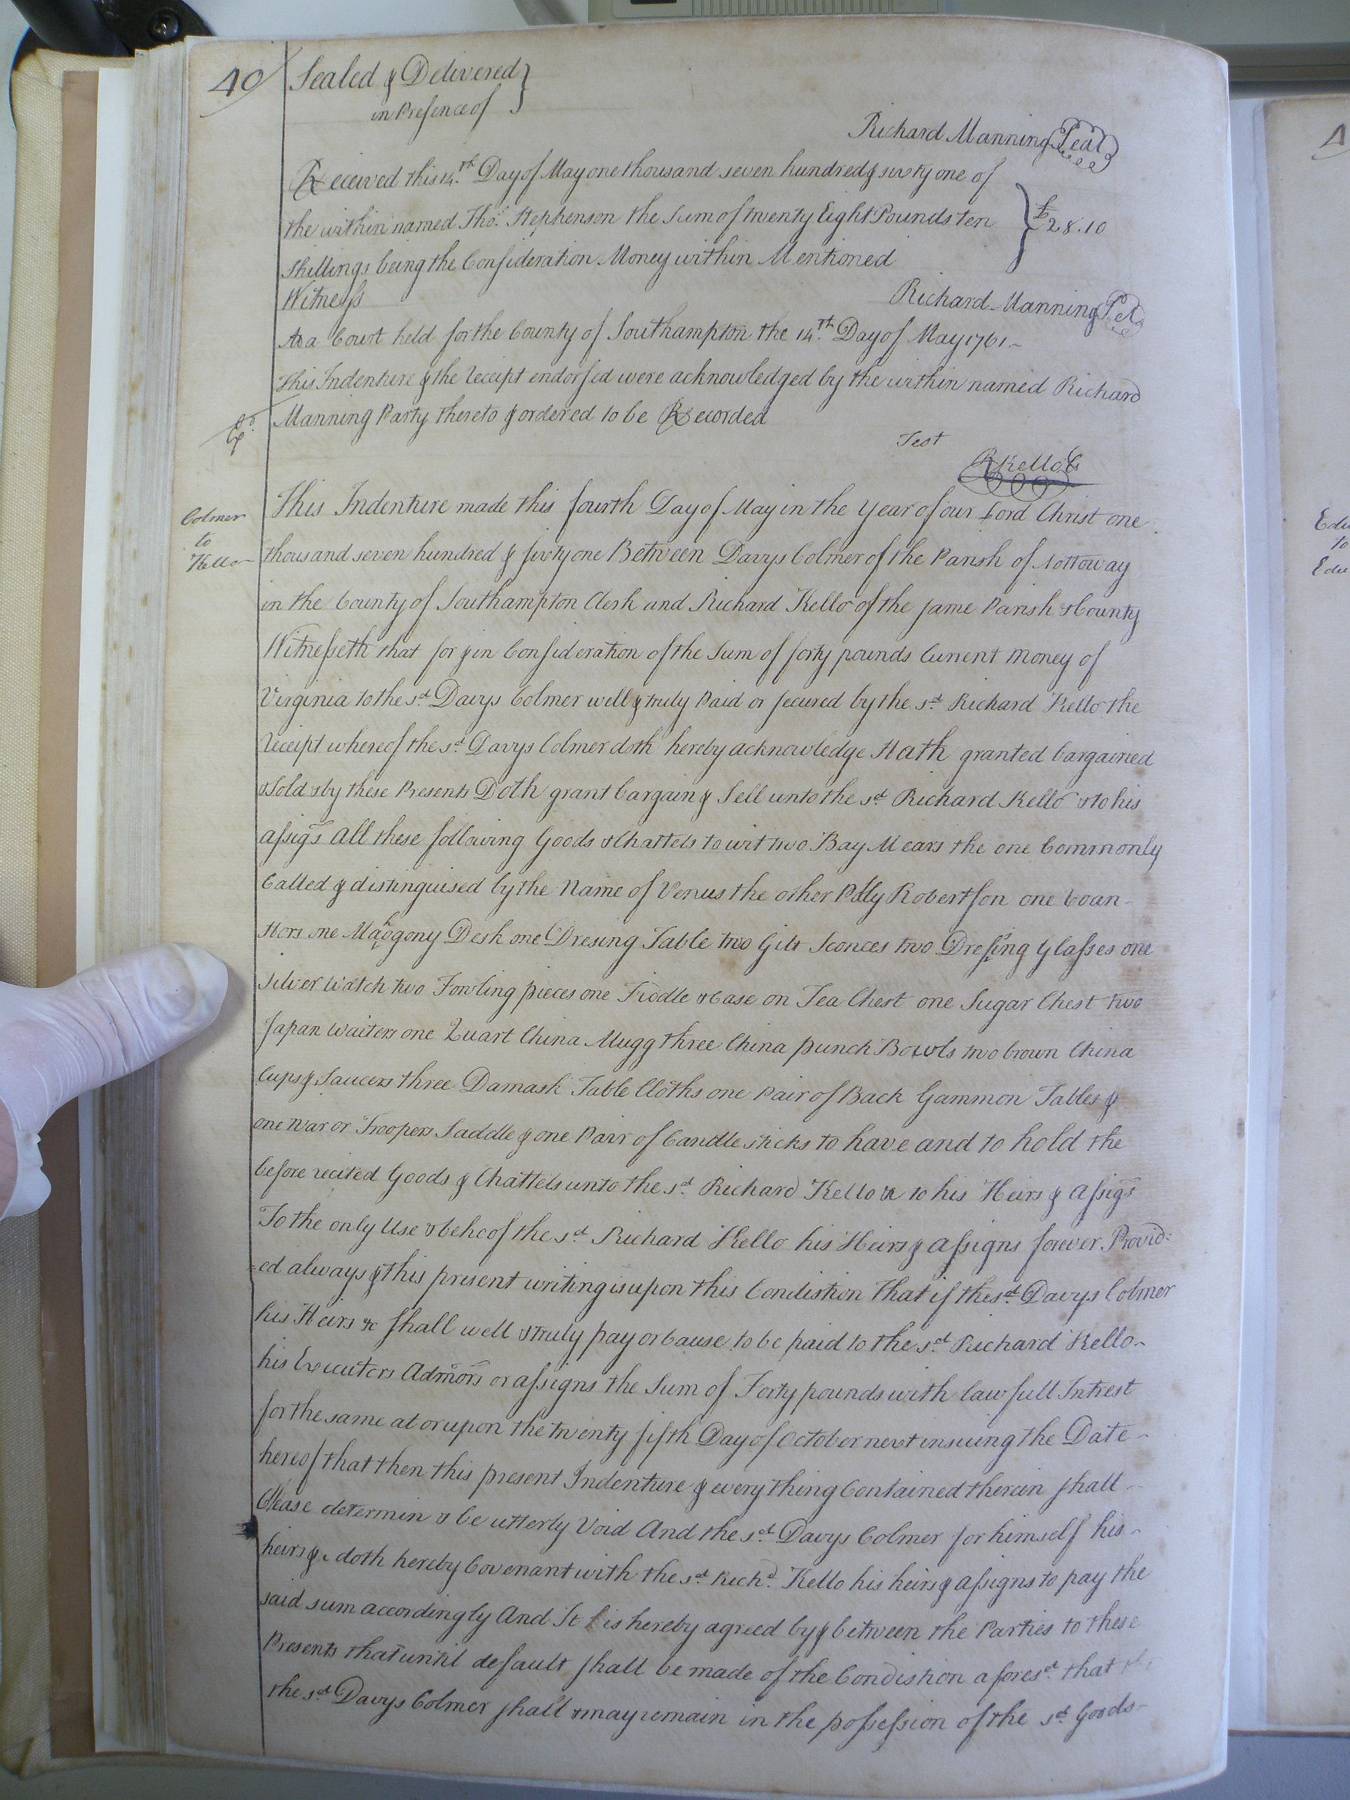 40
Sealed & Delivered }
in Presence of
Richard Manning Seal
Received this 14.th Day of May one thousand seven hundred & sixty one of
the within named Tho.s Stephenson the Sum of twenty Eight Pounds ten } £28.10
Shillings being the Consideration Money within Mentioned
Witness
Richard Manning
At a Court held for the County of Southampton the 14.th Day of May 1761 -
This Indenture & the receipt endorsed were acknowledged by the within named Richard
Manning Party thereto & ordered to be Recorded
Test
R Kello C
Colmer
to
Kello
This Indenture made this fourth Day of May in the Year of our Lord Christ one
thousand seven hundred & sixty one Between Davys Colmer of the Parish of Nottoway
in the County of Southampton Clerk and Richard Kello of the same Parish & County
Witnesseth that for & in Consideration of the Sum of forty pounds Current money of
Virginia to the sd. Davys Colmer well & truly Paid or secured by the sd. Richard Kello the
receipt whereof the sd. Davys Colmer doth hereby acknowledge Hath granted bargained
& Sold & by these Presents Doth grant bargain & Sell unto the sd. Richard Kello & to his
assigs All these following Goods & Chattels to wit two Bay Mears the one Commonly
Called & distinguised by the Name of Venus the other Polly Robertson one roan
Hors one Mahogony Desk one Dresing Table two Gilt Sconces two Dressing Glasses one
Silver Watch two Fowling pieces one Fiddle & Case on Tea Chest one Sugar Chest two
Japan Waiters one Quart China Mugg three China punch Bowls two brown China
Cups & Saucers three Damask Table Cloths one Pair of Back Gammon Tables &
one War or Troopers Saddle & one Pair of Candlesticks to have and to hold the
before recited Goods & Chattels unto the sd. Richard Kello & to his Heirs & Assigs
To the only Use & behoof the sd. Richard Kello his Heirs & Assigns forever Provid=
=ed always & this present writing is upon this Condistion That if the sd. Davys Colmer
his Heirs &c shall well & truly pay or Cause to be paid to the sd. Richard Kello
his Executers Admors or assigns the Sum of Forty pounds with lawfull Intrest
for the same at or upon the twenty fifth Day of October next insuing the Date
hereof that then this present Indenture & every thing Contained therein shall
Cease determin & be utterly Void And the sd. Davys Colmer for himself his
heirs &c doth hereby Covenant with the sd. Richd. Kello his heirs & assigns to pay the
said sum accordingly And It is hereby agreed by & between the Parties to these
Presents that until default shall be made of the Condistion aforesd. that the
the sd. Davys Colmer shall & may remain in the possession of the sd. Goods